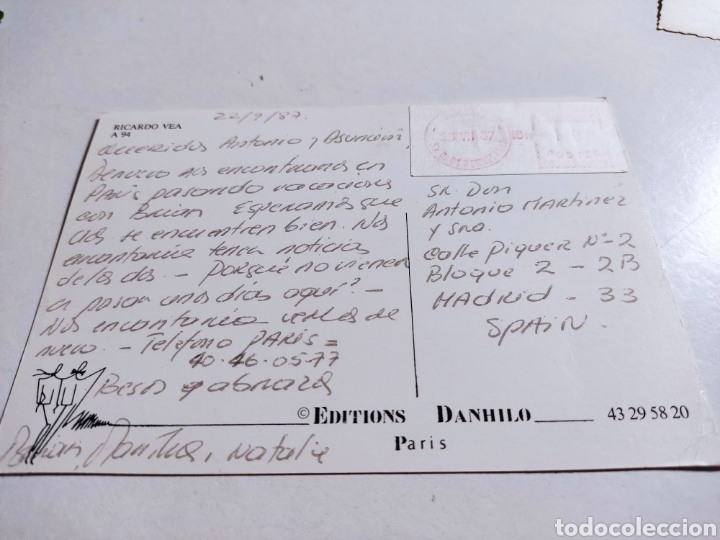 RICARDO VEA
A 94
22/7/87.
Queridos Antonio y Asunción,
nos encontramos en
París pasando vacaciones
con Brian. Esperamos que
Uds. se encuentren bien. Nos
encantaría tener noticias
de Uds. - Porqué no vienen
a pasar unos días aquí? -
Nos encantaría verlos de
nuevo. - Teléfono PARIS =
40.46.05.77
Besos y abrazos
Brian, Natalie
SR. Don
Antonio Martinez
y Sra.
Calle Piquer Nº-2
Bloque 2 - 2B
Madrid - 33
SPAIN.
© EDITIONS DANHILO 43 29 58 20
Paris
todocoleccion